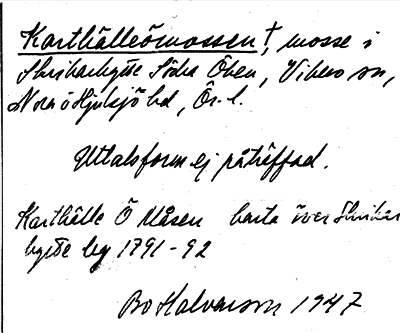 Karthälleömossen†, mosse i
Skrikarhytte Södra Öken, Vikers sn,
Nora o Hjulsjö bd, Ör. l.
Uttalsform ej påträffad.
Karthälle Ö Måsen karta över Skrikar
hytte by 1791-92
Bo Halvarson 1947